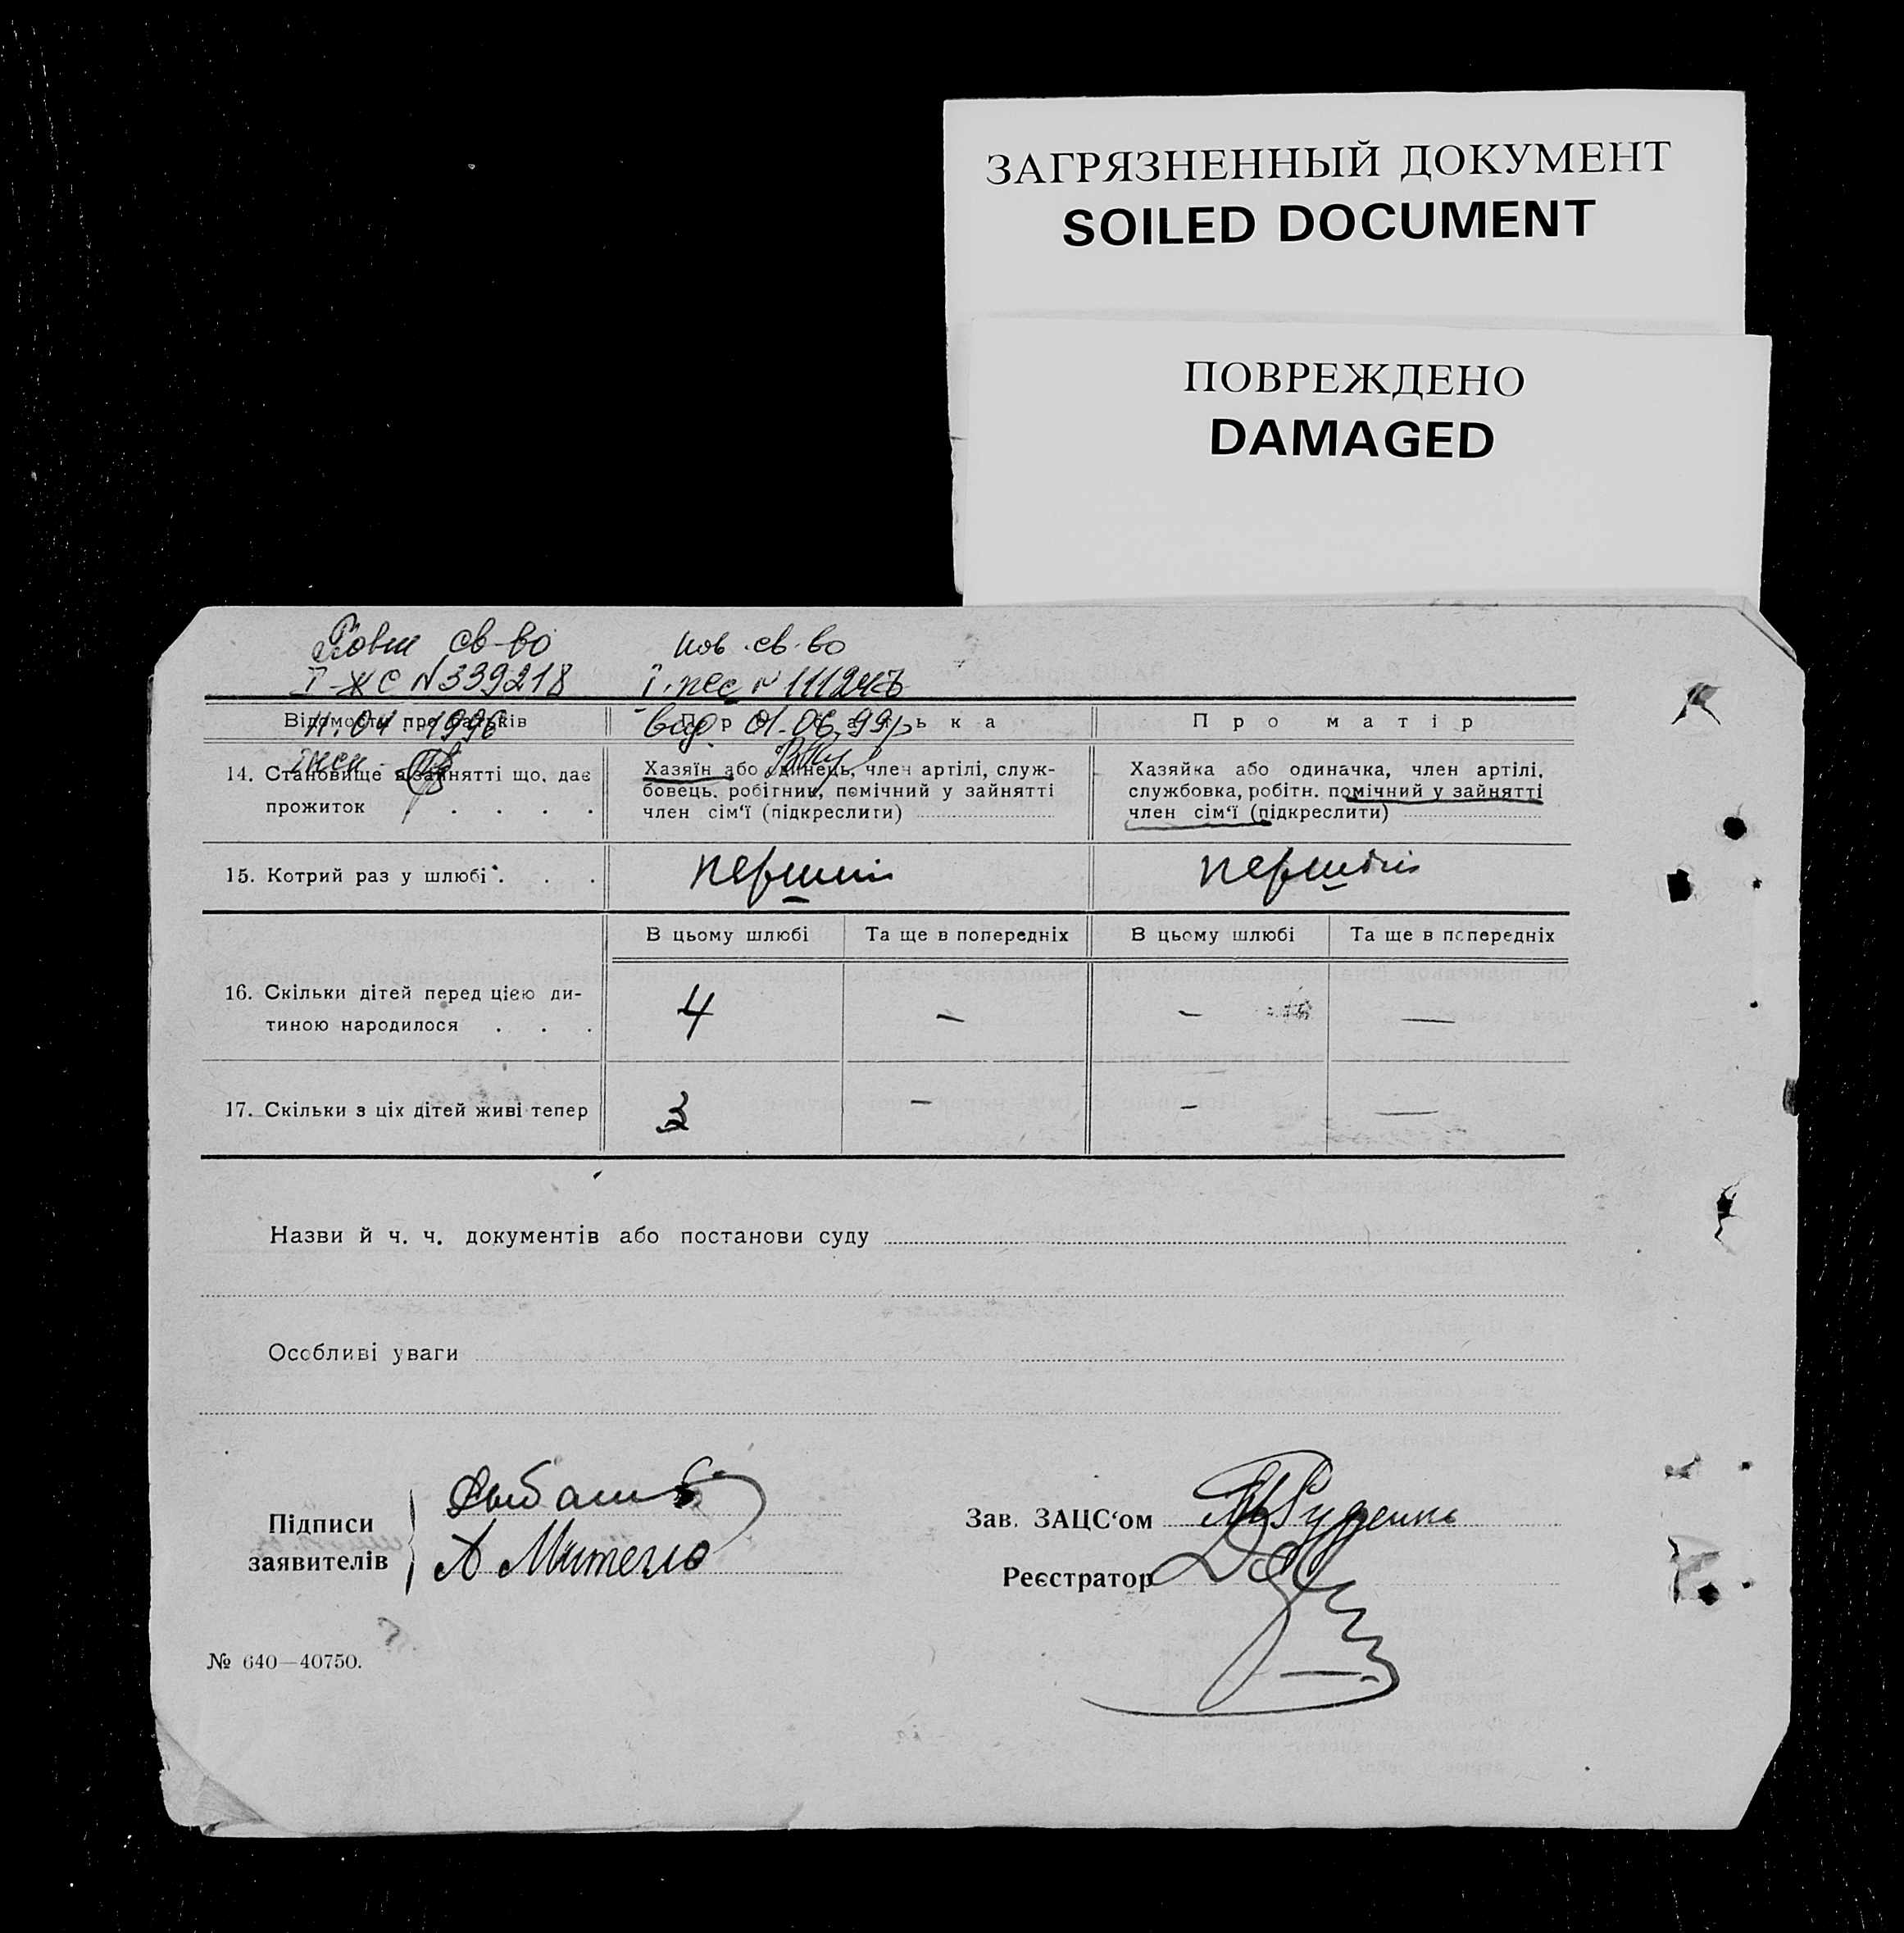 ЗАГРЯЗНЕННЫЙ ДОКУМЕНТ
SOILED DOCUMENT
ПОВРЕЖДЕНО
DAMAGED
св-во
N 339218
пов. св-во
N 111247
Відомости про батьків
Про батька
Про матір
11.04.1996
вид. 01.06.99р
14. Становище в занятті що, дає
прожиток . . . .
Хазяїн або одинець, член артілі, служ-
бовець, робітник, помічний у зайнятті
член сім‘ї (підкреслити)
Хазяйка або одиначка, член артілі,
службовка, робітн. помічний у зайнятті
член сім‘ї (підкреслити)
15. Котрий раз у шлюбі . . .
перший
перший
В цьому шлюбі
Та ще в попередніх
В цьому шлюбі
Та ще в попередніх
16. Скільки дітей перед цією ди-
тиною народилося . . .
4 – – —
17. Скільки з ціх дітей живі тепер
3 – – —
Назви й ч. ч. документів або постанови суду
Особливі уваги
Підписи
заявителів
Зав. ЗАЦС‘ом
Руденко
Реєстратор
№ 640—40750.